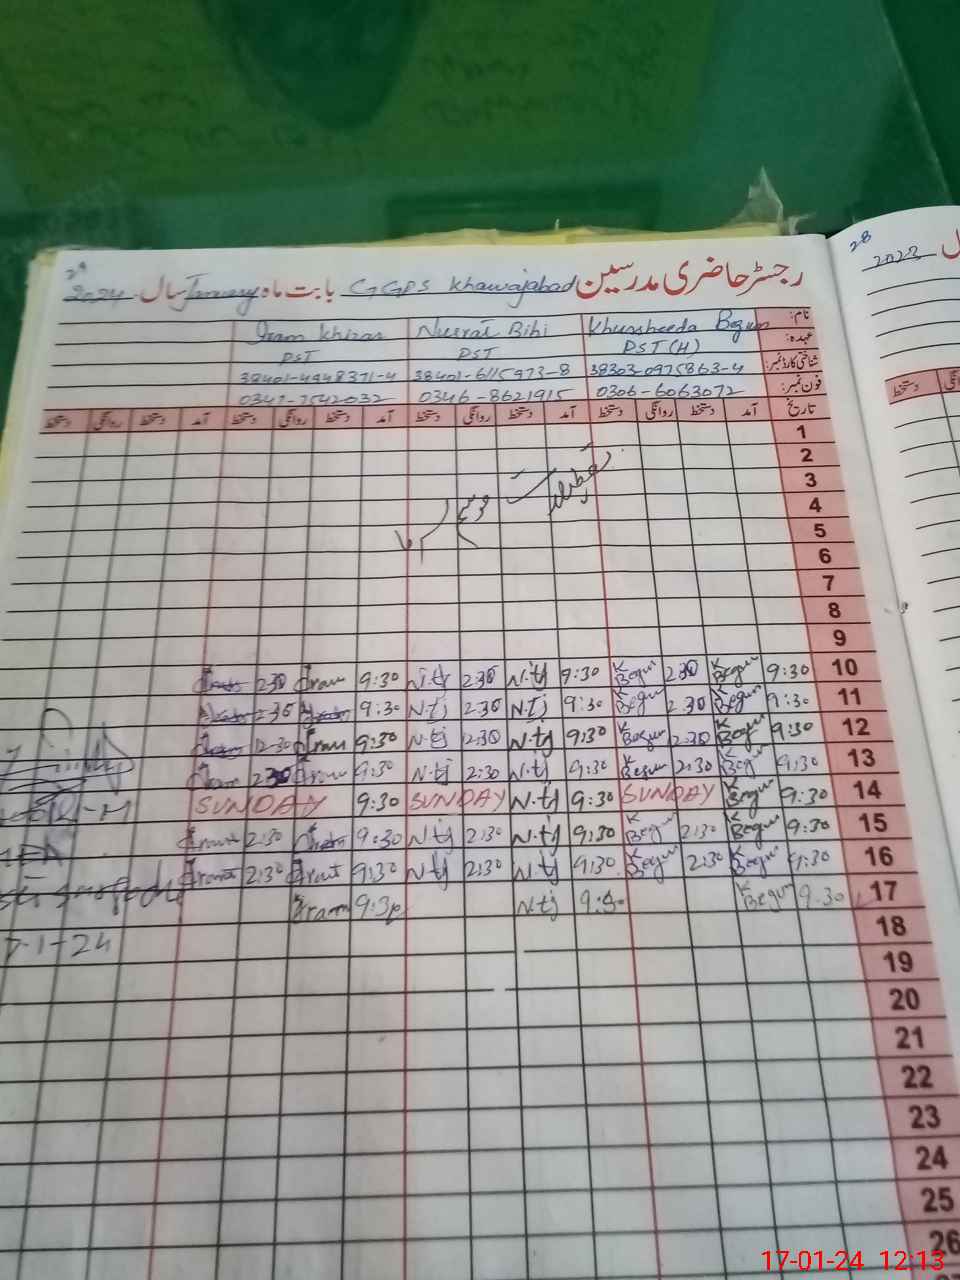 رجسٹر حاضری مدرسین GGPS Khawajabad بابت ماہ January سال 2024
28
2023
نام: Khursheeda Begum Nusrat Bibi Iram Khizar
عہدہ: PST(H) PST PST
شناختی کارڈ نمبر: 38303-0975863-4 38401-6115973-8 38401-4948371-4
فون نمبر: 0306-6063072 0346-8621915 0347-7542032
تاریخ آمد دستخط روانگی دستخط آمد دستخط روانگی دستخط آمد دستخط روانگی دستخط
1
2
3
4
5
تعطیلات موسم سرما
6
7
8
9
10 9:30 K Begum 2:30 K Begum 9:30 N.tj 2:30 N.tj 9:30 Iram 2:30
11 9:30 K Begum 2:30 K Begum 9:30 N.tj 2:30 N.tj 9:30 2:30
12 9:30 K Begum 2:30 K Begum 9:30 N.tj 2:30 N.tj 9:30 Iram 2:30
13 9:30 K Begum 2:30 K Begum 9:30 N.tj 2:30 N.tj 9:30 Iram 2:30
14 9:30 K Begum SUNDAY 9:30 N.tj SUNDAY 9:30 SUNDAY
15 9:30 K Begum 2:30 K Begum 9:30 N.tj 2:30 N.tj 9:30 2:30 Iram
16 9:30 K Begum 2:30 K Begum 9:30 N.tj 2:30 N.tj 9:30 Iram 2:30 Iram
17 9:30 K Begum 9:30 N.tj 9:30 Iram
18
-1-24
19
20
21
22
23
24
25
26
17-01-24 12:13